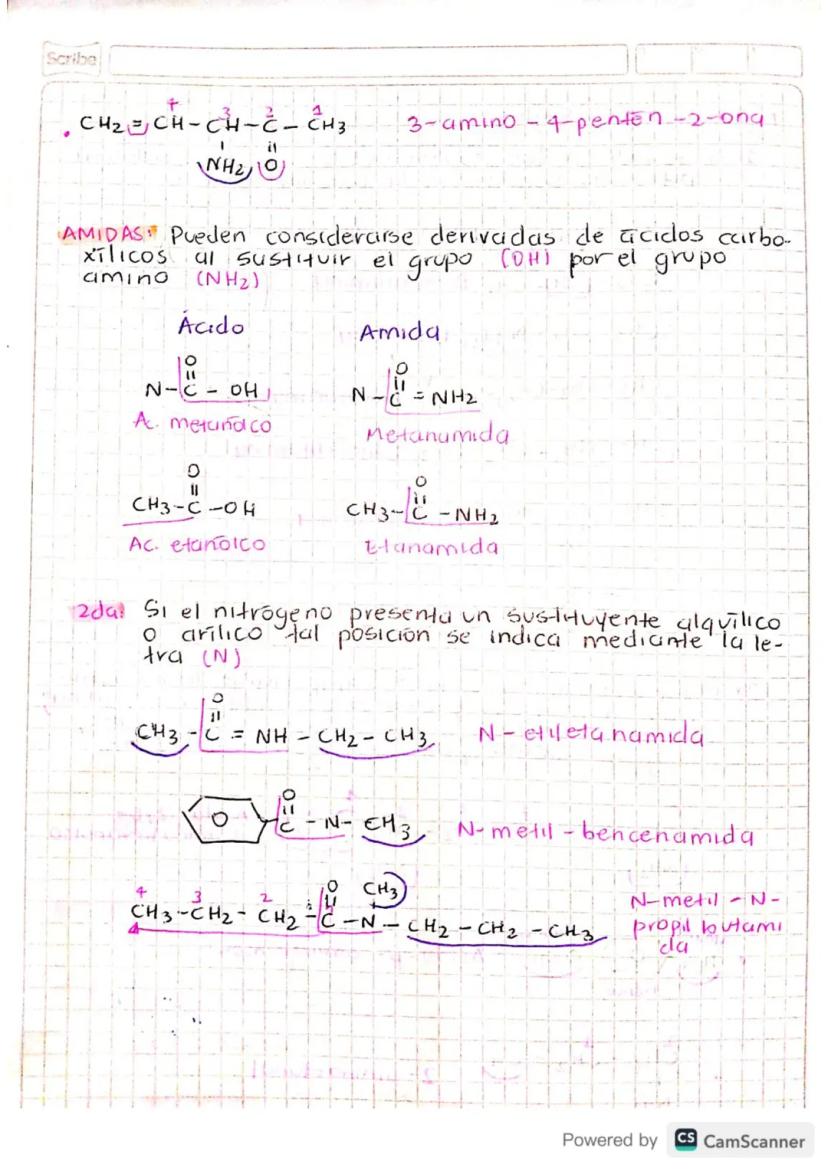 Scribe
4 3 2 1
CH2=CH-CH-C-CH3 3-amino-4-penten-2-ona
NH2 O
AMIDAS: Pueden considerarse derivadas de ácidos carbo-
xílicos al sustituir el grupo (OH) por el grupo
amino (NH2)
Ácido Amida
O O
N-C-OH N-C=NH2
A. metanóico Metanamida
O O
CH3-C-OH CH3-C-NH2
Ac. etanóico Etanamida
2da: Si el nitrógeno presenta un sustituyente alquílico
o arílico tal posición se indica mediante la le-
tra (N)
O
CH3-C=NH-CH2-CH3 N-etiletanamida
O
O C-N-CH3 N-metil-bencenamida
4 3 2 O CH3
CH3-CH2-CH2-C-N-CH2-CH2-CH3 N-metil-N-
propil butami
da
Powered by CS CamScanner